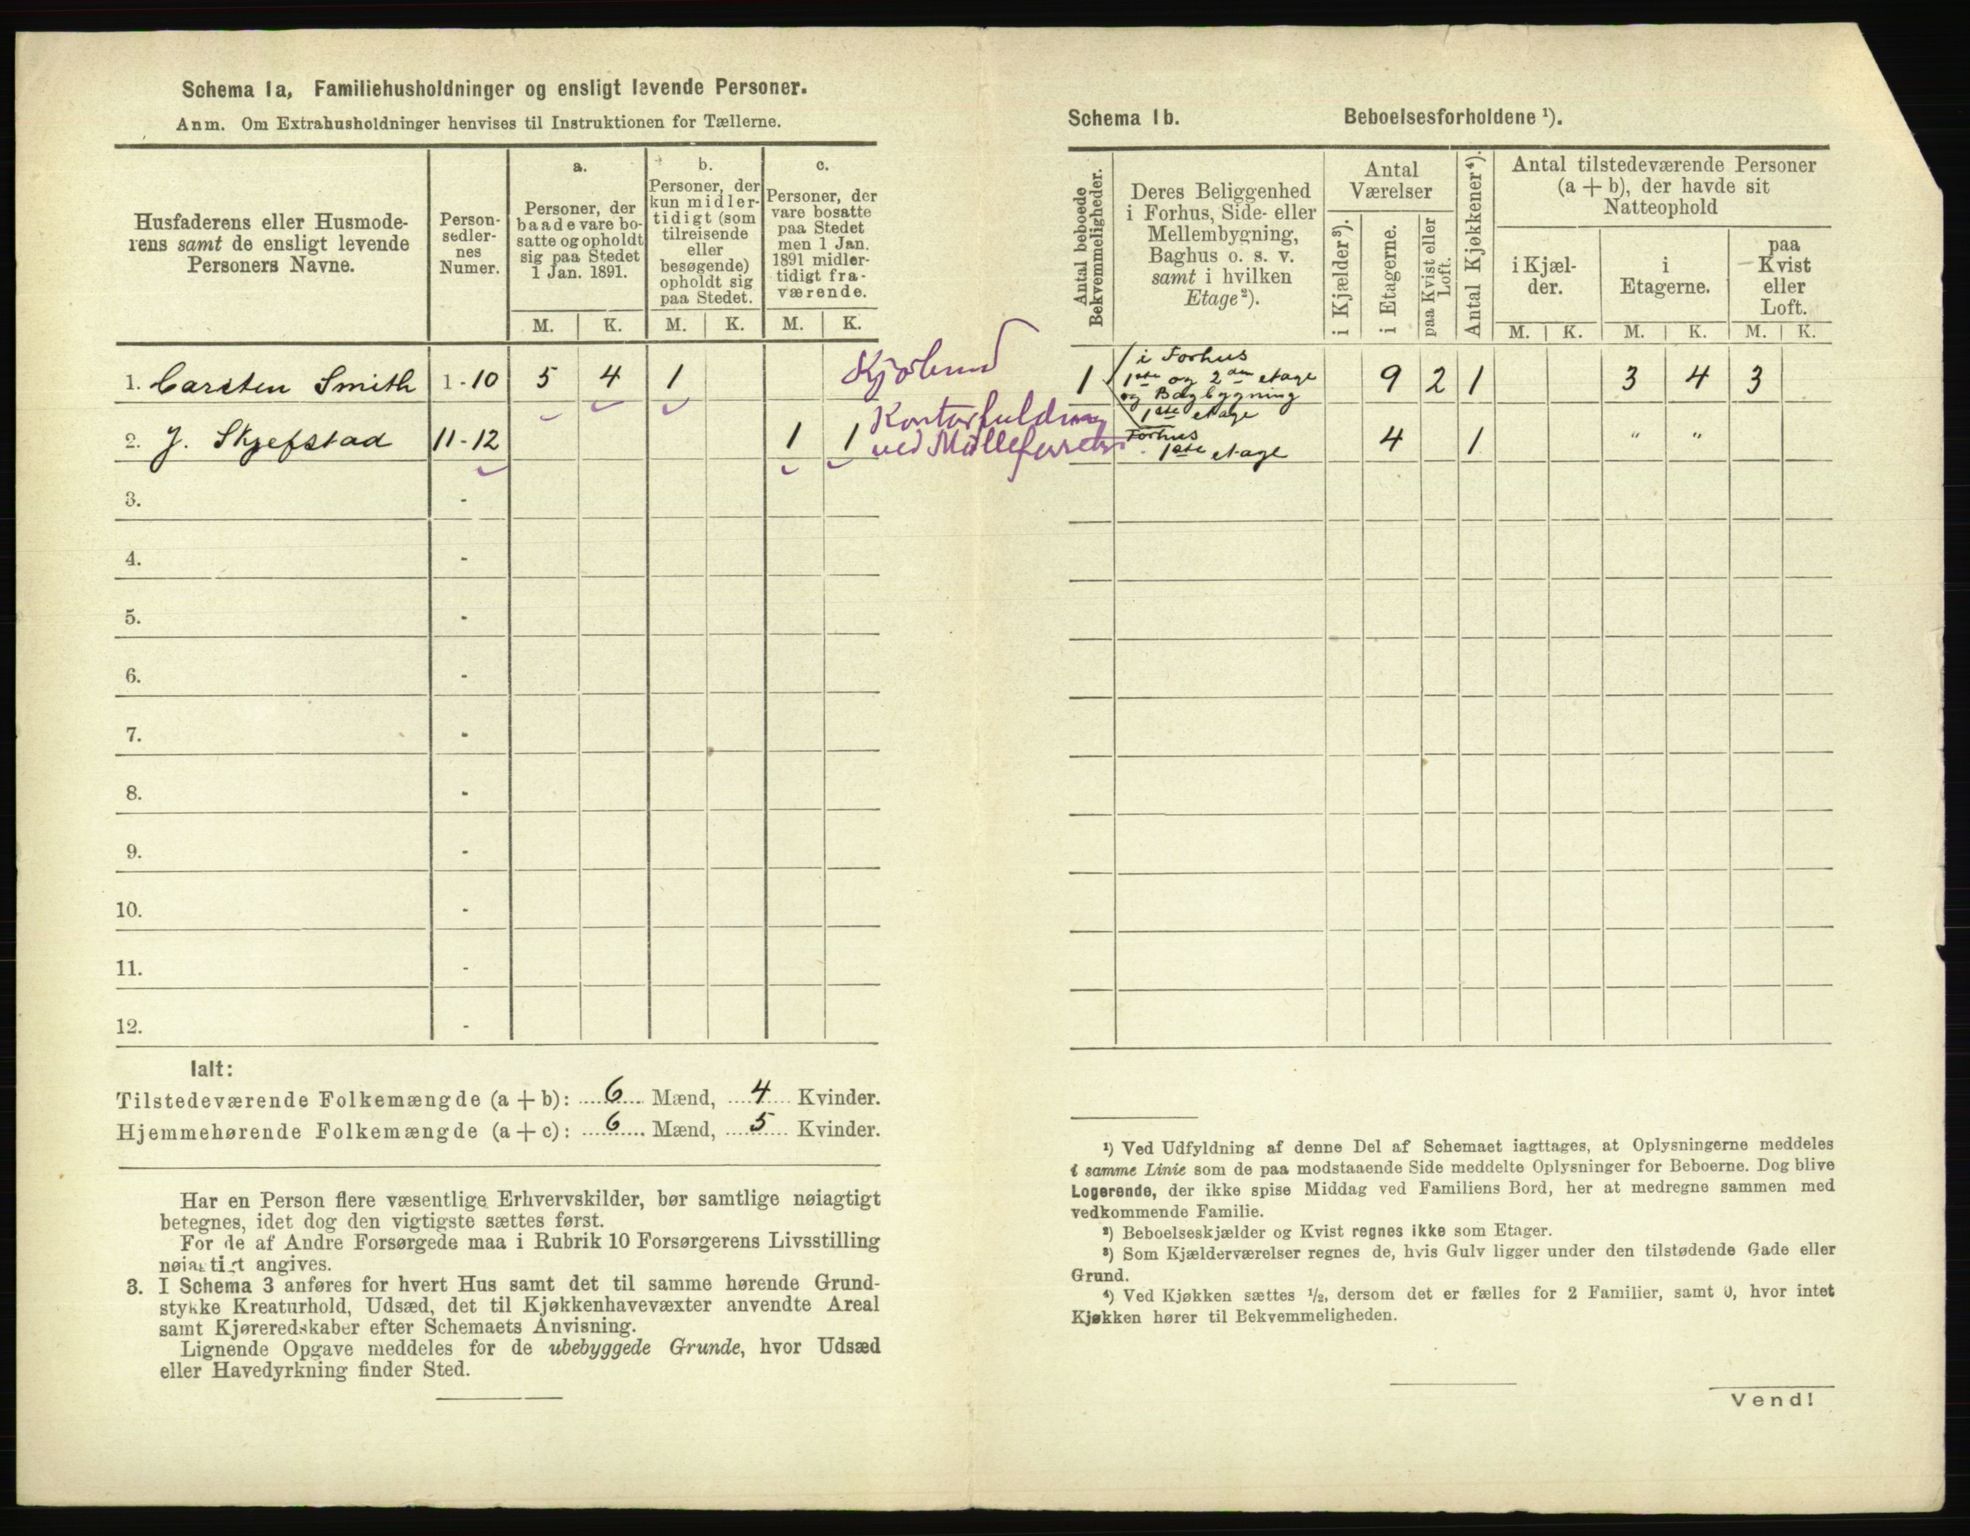 Schema 1a, Familiehusholdninger og ensligt levende Personer.
Anm. Om Extrahusholdninger henvises til Instruktionen for Tællerne.
Husfaderens eller Husmode-
rens samt de ensligt levende
Personers Navne.
Person-
sedler-
nes
Numer.
a.
Personer, der
baade vare bo-
satte og opholdt
sig paa Stedet
1 Jan. 1891.
b.
Personer, der
kun midler-
tidigt (som
tilreisende
eller
besøgende)
opholdt sig
paa Stedet.
c.
Personer, der
vare bosatte
paa Stedet
men 1 Jan.
1891 midler-
tidigt fra-
værende.
M. K. M. K. M. K.
1. Carsten Smith 1 - 10 5 4 1
2. J. Skjefstad 11 - 12 1 1
ved
3. -
4. -
5. -
6. -
7. -
8. -
9. -
10. -
11. -
12. -
Ialt:
Tilstedeværende Folkemængde (a + b): 6 Mænd, 4 Kvinder.
Hjemmehørende Folkemængde (a + c): 6 Mænd, 5 Kvinder.
Har en Person flere væsentlige Erhvervskilder, bør samtlige nøiagtigt
betegnes, idet dog den vigtigste sættes først.
For de af Andre Forsørgede maa i Rubrik 10 Forsørgerens Livsstilling
nøiagtigt angives.
3. I Schema 3 anføres for hvert Hus samt det til samme hørende Grund-
stykke Kreaturhold, Udsæd, det til Kjøkkenhavevæxter anvendte Areal
samt Kjøreredskaber efter Schemaets Anvisning.
Lignende Opgave meddeles for de ubebyggede Grunde, hvor Udsæd
eller Havedyrkning finder Sted.
Schema 1b. Beboelsesforholdene ¹).
Antal beboede
Bekvemmeligheder.
Deres Beliggenhed
i Forhus, Side- eller
Mellembygning,
Baghus o. s. v.
samt i hvilken
Etage ²).
Antal
Værelser
i Kjælder ³).
i Etagerne.
paa Kvist eller
Loft.
Antal Kjøkkener ⁴).
Antal tilstedeværende Personer
(a + b), der havde sit
Natteophold
i Kjæl-
der.
i
Etagerne.
paa
Kvist
eller
Loft.
M. K. M. K. M. K.
i Forhus
1 1ste og 2den etage 9 2 1 3 4 3
og Bagbygning
1ste etage
Forhus 4 1 " "
1ste etage
¹) Ved Udfyldning af denne Del af Schemaet iagttages, at Oplysningerne meddeles
i samme Linie som de paa modstaaende Side meddelte Oplysninger for Beboerne. Dog blive
Logerende, der ikke spise Middag ved Familiens Bord, her at medregne sammen med
vedkommende Familie.
²) Beboelseskjælder og Kvist regnes ikke som Etager.
³) Som Kjælderværelser regnes de, hvis Gulv ligger under den tilstødende Gade eller
Grund.
⁴) Ved Kjøkken sættes ½, dersom det er fælles for 2 Familier, samt 0, hvor intet
Kjøkken hører til Bekvemmeligheden.
Vend!